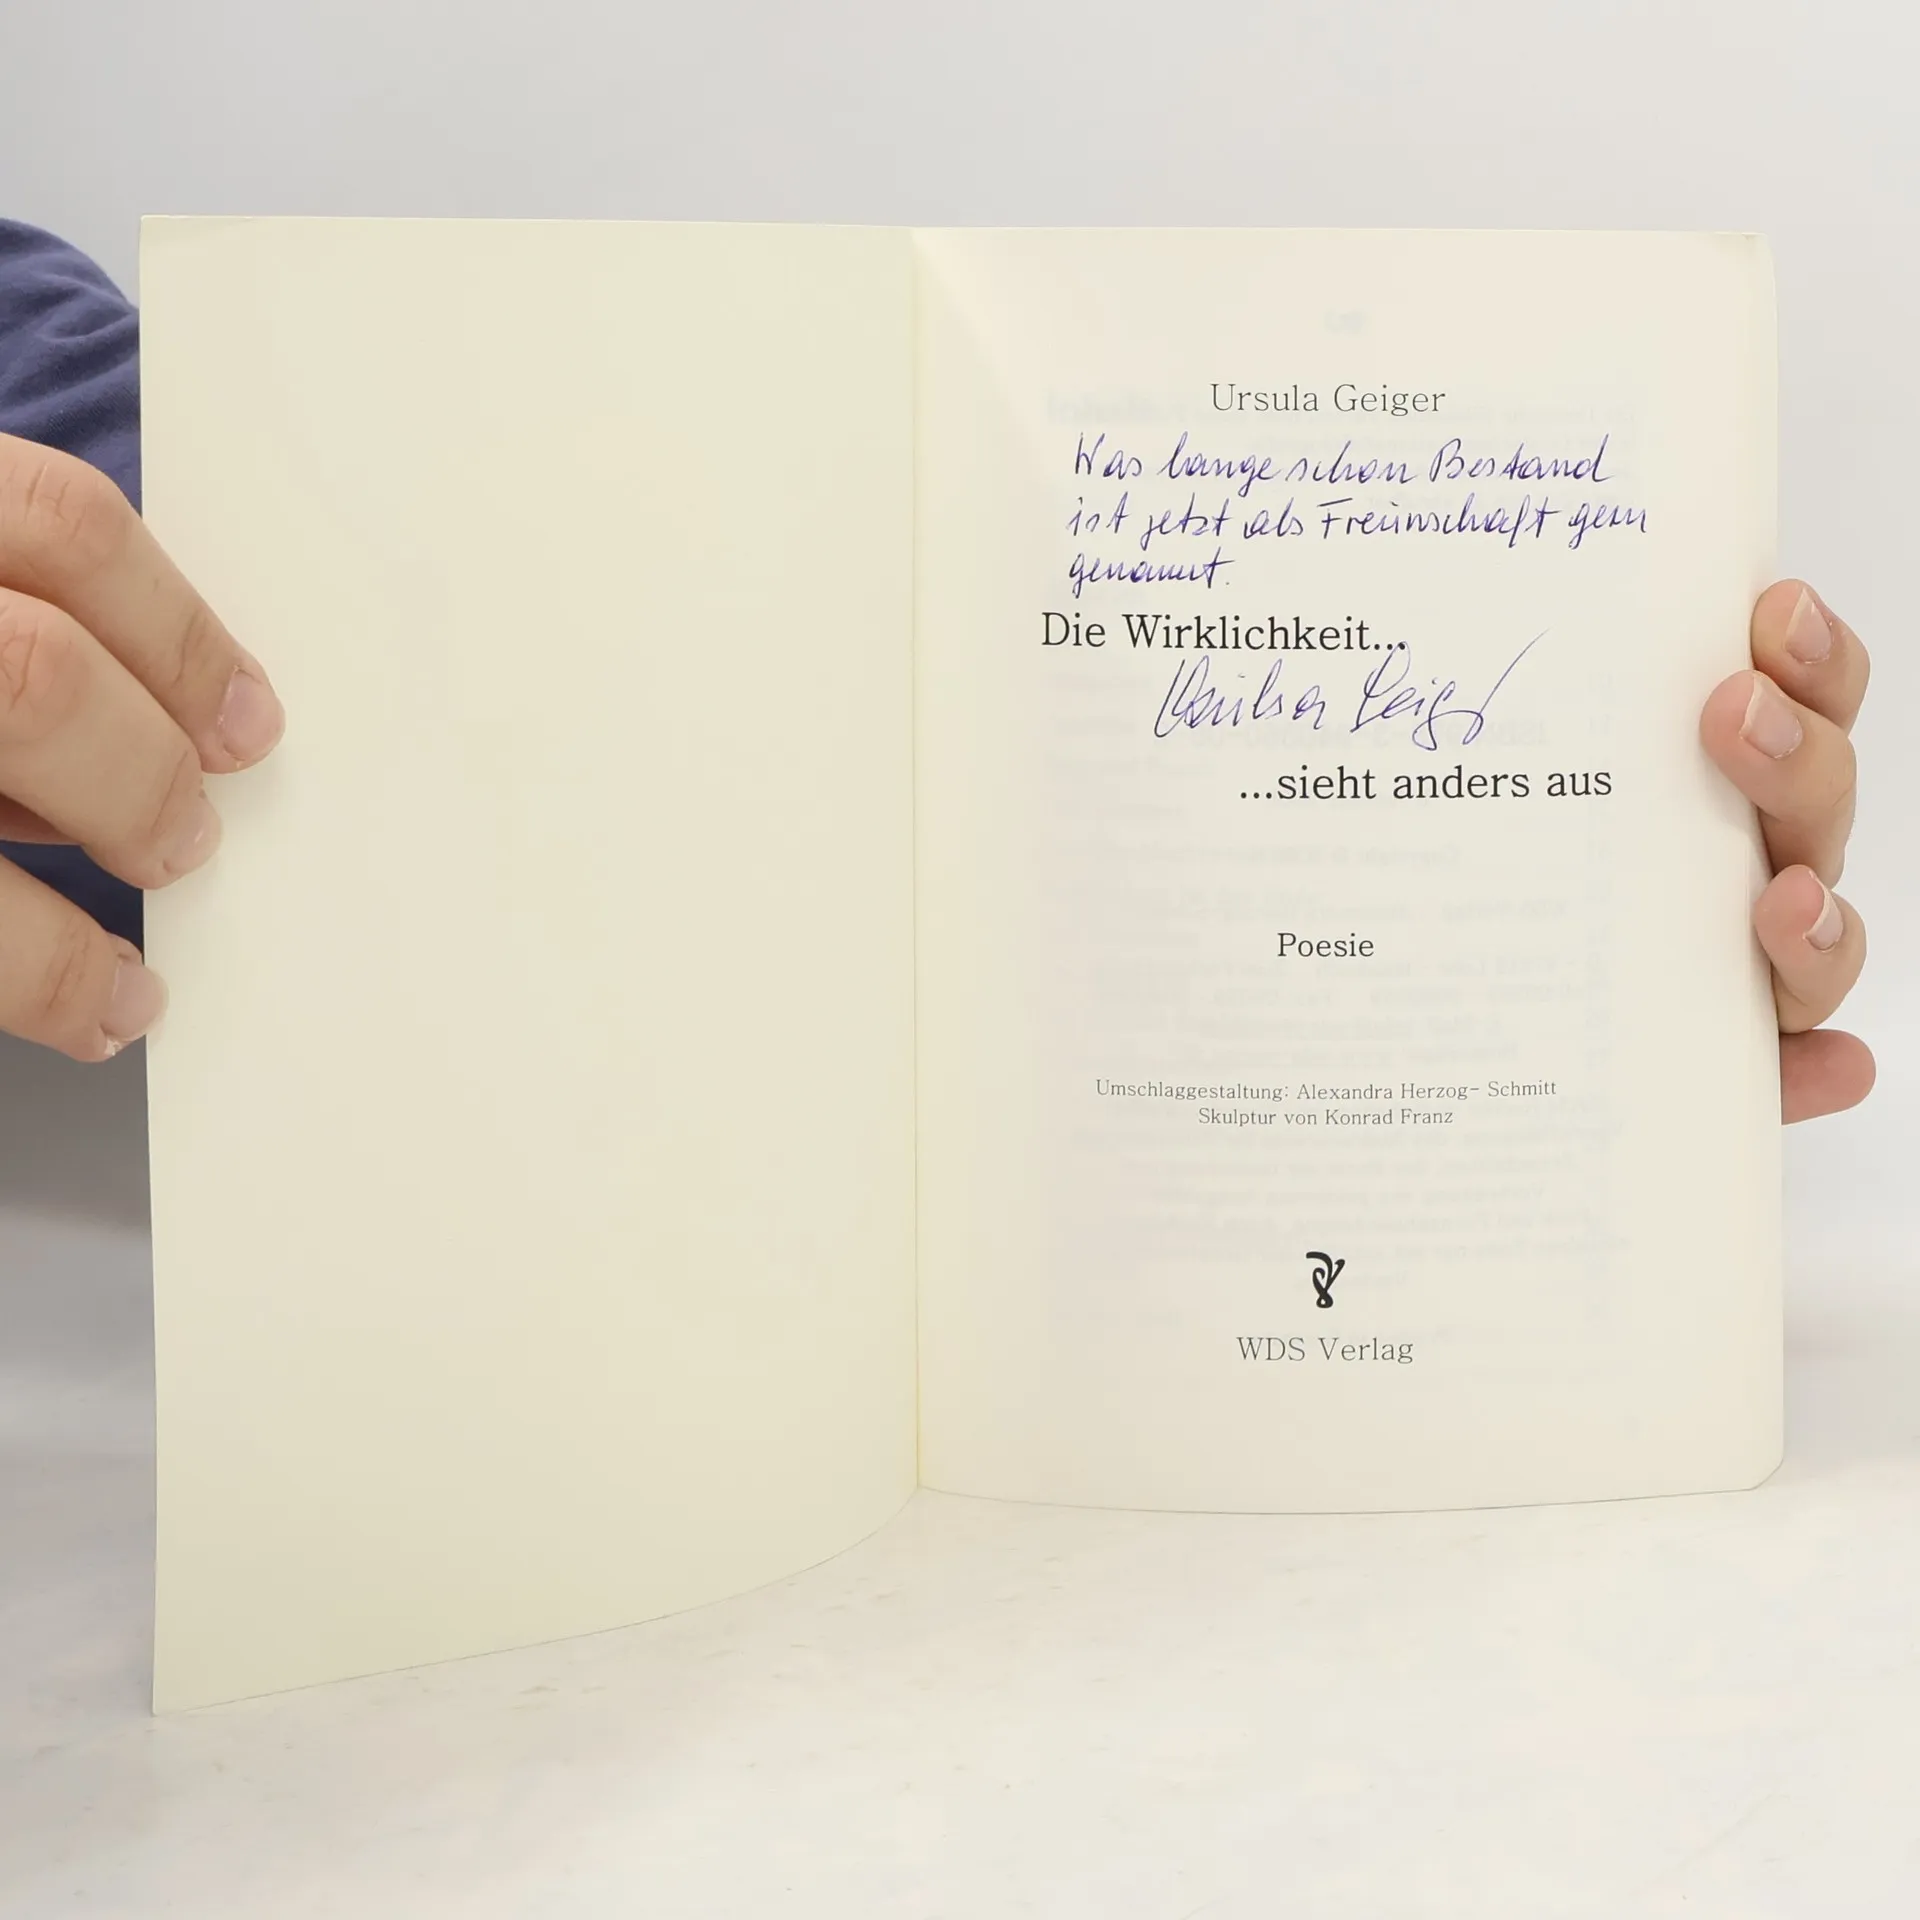 Ursula Geiger
Was lange schon Bestand
ist jetzt als Freunschaft gern
genannt.
Die Wirklichkeit...
Ursula Geiger
...sieht anders aus
Poesie
Umschlaggestaltung: Alexandra Herzog- Schmitt
Skulptur von Konrad Franz
WDS Verlag